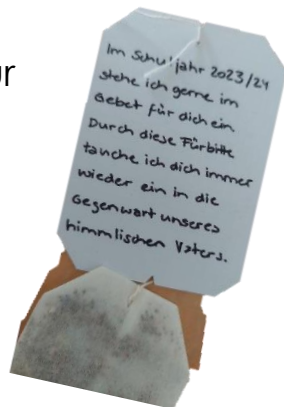 ur
Im Schuljahr 2023/24
stehe ich gerne im
Gebet für dich ein
Durch diese Fürbitte
tauche ich dich immer
wieder ein in die
Gegenwart unseres
himmlischen Vaters.